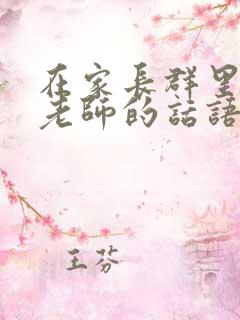 在家長群里
老師的話語
王芬